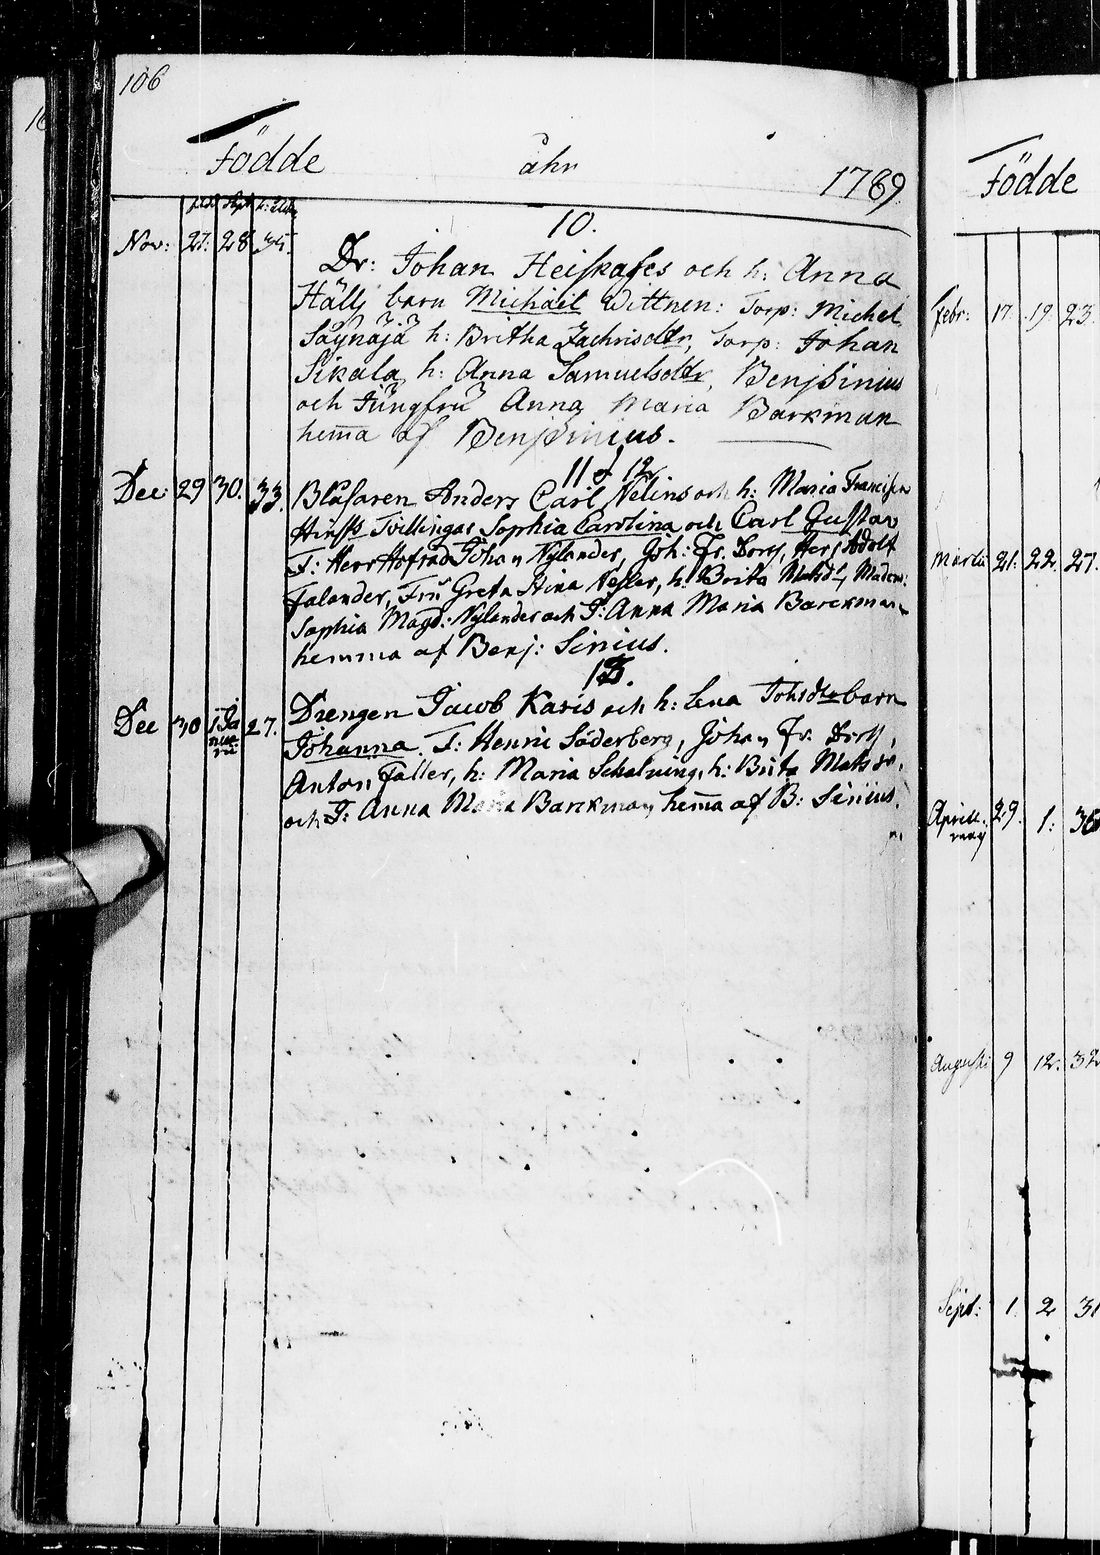 106
Födde åhr 1789
föd: döpt h: åld:
10.
Nov: 27. 28 35.
Dr: Johan Heiskases och h: Anna
Hällj barn Michaël Wittnen: Torp: Michel
Säynäjä h: Britha Zachrisdtr, Torp: Johan
Sikala, h: Anna Samuelsdtr, Benj Sinius
och Jungfru Anna Maria Barkman
hemma af Benj Sinius.
11 & 12
Dec: 29 30. 33.
Blåsaren Anders Carl Nelins och h: Maria
Tvillingar Sophia Carolina och Carl Gustav
F: Herr Hofråd Johan Nylander, Joh: Fr. Herr Adolf
Falander, Fru Greta Stina h: Brita Matsdr, Madem:
Sophia Magd: Nylander och J: Anna Maria Barckman
hemma af Benj: Sinius.
13.
Dec 30 1 Januarii 27.
Drengen Jacob Karis och h: Lena Johsdtr barn
Johanna. F: Henric Söderberg, Johan Fr.
Anton Faller, h: Maria h: Brita Matsdr,
och J: Anna Maria Barckman hemma af B: Sinius.
Födde
Febr: 17. 19. 23.
Martii 21. 22. 27.
Aprill. 29. 1. 36
may
Augusti 9 12. 32
Sept: 1. 2 31